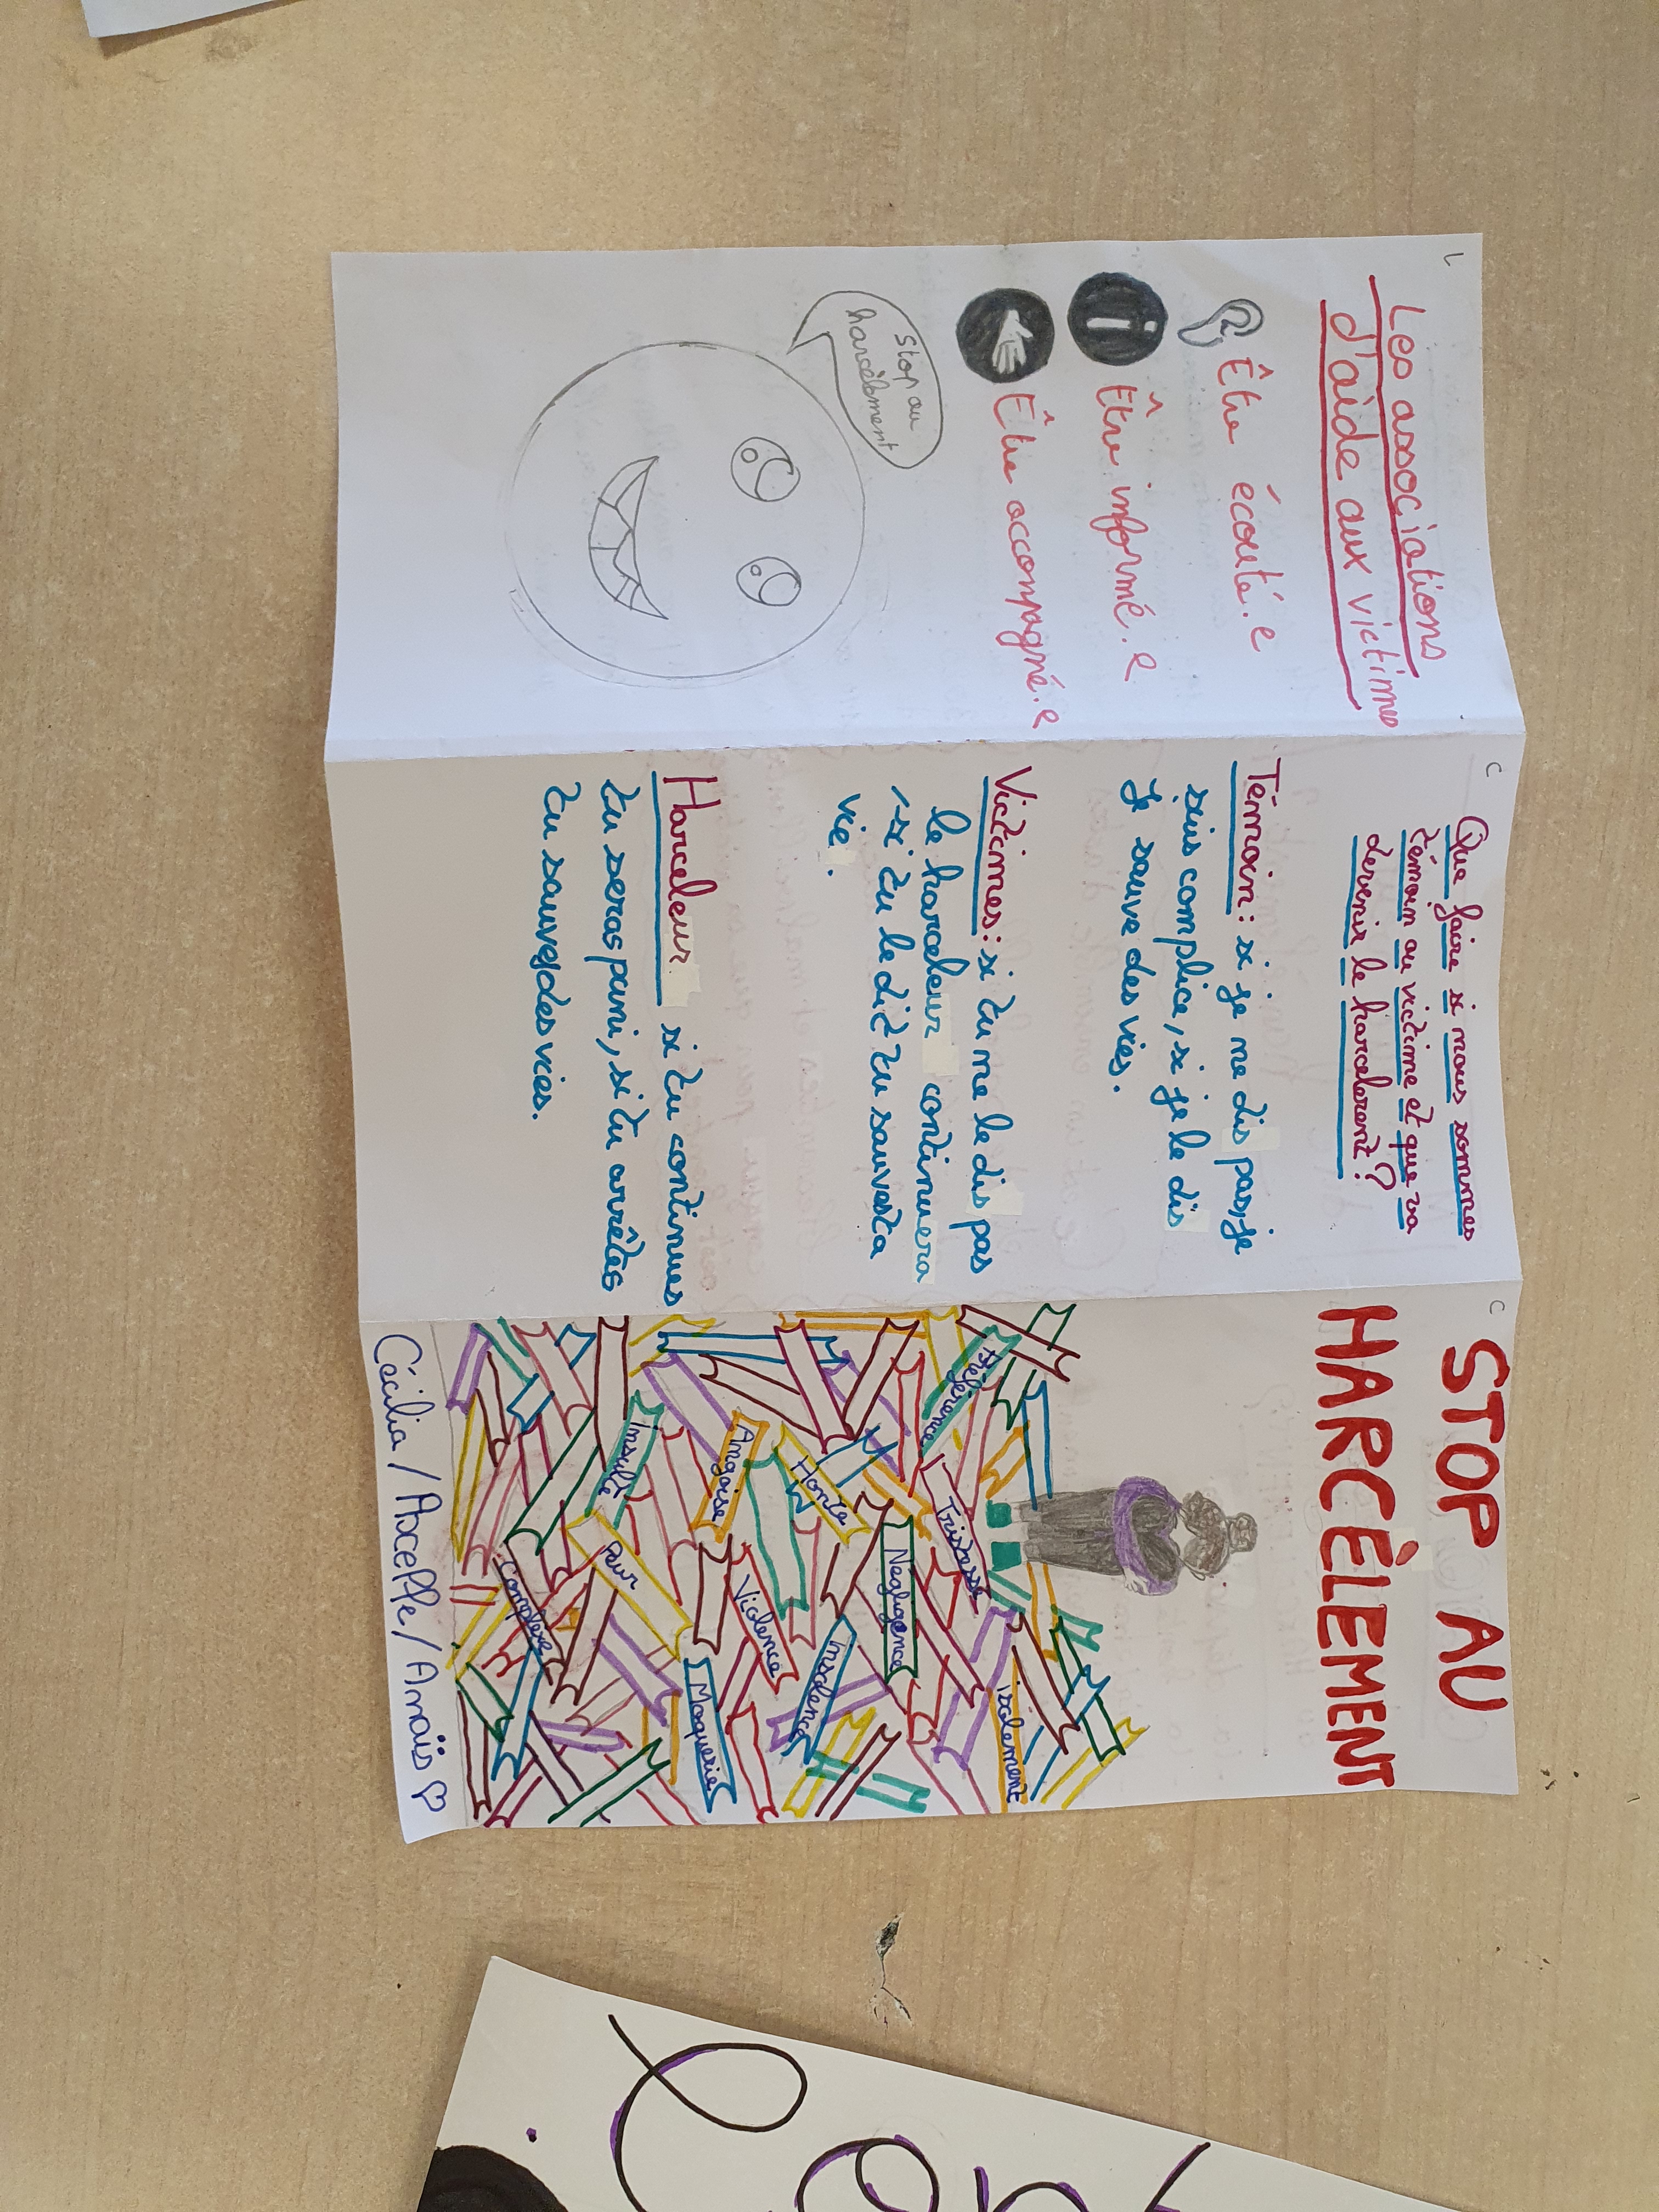 Les associations
d'aide aux victimes
Être écouté.e
Être informé.e
Être accompagné.e
Stop au
harcèlement
Que faire si nous sommes
témoin ou victime et que va
devenir le harcelerent ?
Témoin : si je ne dis pas, je
suis complice, si je le dis
je sauve des vies.
Victimes : si tu me le dis pas
le harceleur continuera
si tu le dit tu sauvesta
vie.
Harceleur si tu continues
tu seras puni, si tu arrêtes
tu sauves des vies.
STOP AU
HARCÈLEMENT
isolement
Tristesse
Négligence
Honte
Insolence
Angoisse
Violence
Moquerie
Insulte
Peur
Complexe
Cécilia / / Anaïs ♡